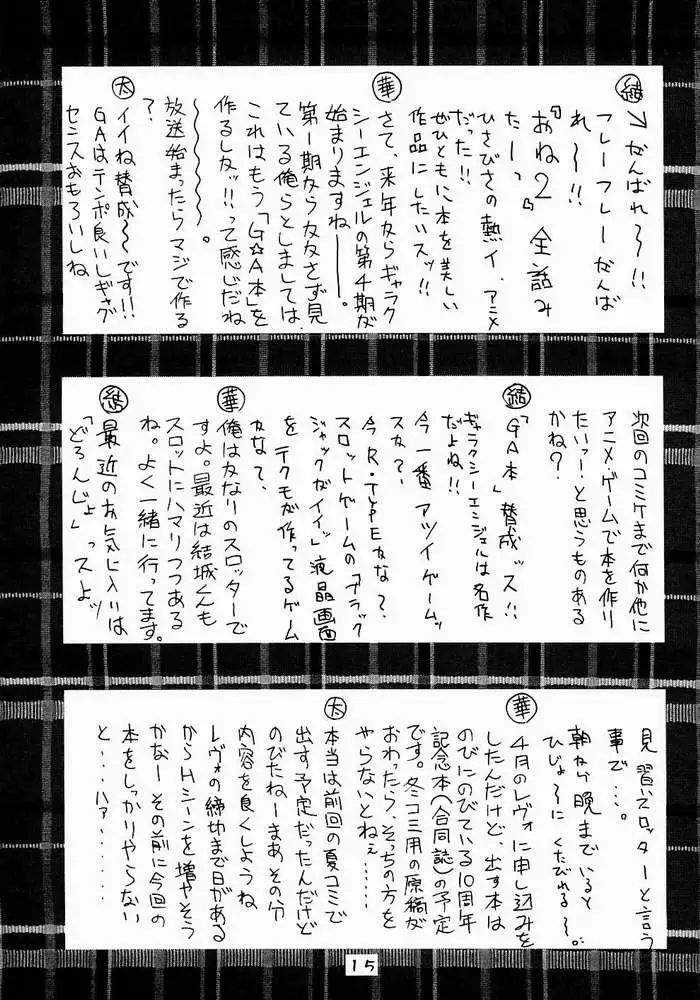 結 → がんばれ〜!!
フレーフレーがんば
れ〜!!
『おね2』全話み
たーっ
ひさびさの熱イ、アニメ
だった!!
ぜひともに本を美しい
作品にしたいスッ!!
華 さて、来年からギャラク
シーエンジェルの第4期が
始まりますねー。
第1期からかかさず見
ている俺らとしましては、
これはもう「G☆A本」を
作るしカッ!!って感じだね
〜〜〜〜。
放送始まったらマジで作る
?
太 イイね賛成〜です!!
GAはテンポ良いしギャグ
センスおもろいしね
次回のコミケまで何か他に
アニメ・ゲームで本を作り
たいっー!と思うものある
かね?
結 「GA本」賛成ッス!!
ギャラクシーエンジェルは名作
だよね!!
今一番アツイゲームッ
スか?、
今R・TYPEかな?、
スロットゲームの「ブラック
ジャックがイイッ」液晶画面
をテクモが作ってるゲーム
かな?、
華 俺はかなりのスロッターで
すよ。最近は結城くんも
スロットにハマりつつある
ね。よく一緒に行ってます。
結 最近のお気に入りは
「どろんじょ」っスよッ
見習いスロッターと言う
事で…。
朝から晩までいると
ひじょ〜に くたびれる〜。
華 4月のレヴォに申し込みを
したんだけど、出す本は
のびにのびている10周年
記念本(合同誌)の予定
です。冬コミ用の原稿が
おわったら、そっちの方を
やらないとねぇ……
太 本当は前回の夏コミで
出す予定だったんだけど
のびたねーまあその分
内容を良くしようね
レヴォの締切まで日がある
からHシーンを増やそう
かなー その前に今回の
本をしっかりやらない
と…・ハァ・……
15